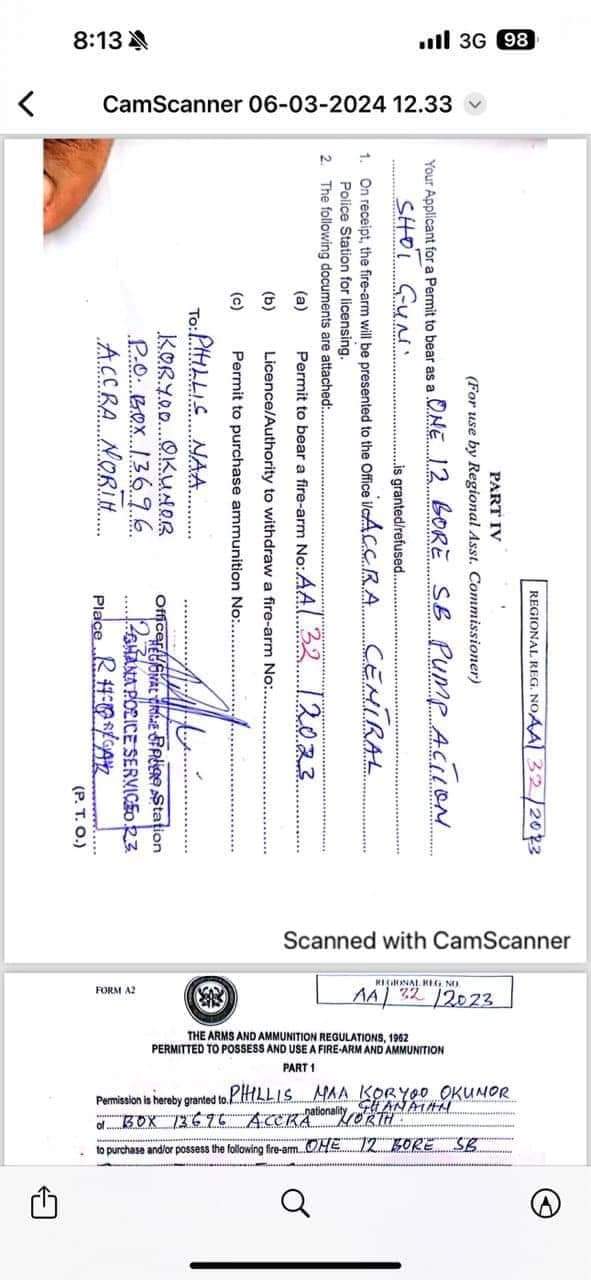 8:13
3G 98
CamScanner 06-03-2024 12.33
REGIONAL REG. NO AA/32/2023
PART IV
(For use by Regional Asst. Commissioner)
Your Applicant for a Permit to bear as a ONE 12 BORE SB PUMP ACTION
SHOT GUN. is granted/refused.
1. On receipt, the fire-arm will be presented to the Office i/c ACCRA CENTRAL
Police Station for licensing.
2. The following documents are attached:
(a) Permit to bear a fire-arm No: AA/32/2023
(b) Licence/Authority to withdraw a fire-arm No:
(c) Permit to purchase ammunition No:
To: PHILLIS NAA
KORYOO OKUNOR
P.O. BOX 13696
ACCRA NORTH
Police Station
GHANA POLICE SERVICE
Place
(P. T. O.)
Scanned with CamScanner
FORM A2
REGIONAL REG. NO.
AA/32/2023
THE ARMS AND AMMUNITION REGULATIONS, 1962
PERMITTED TO POSSESS AND USE A FIRE-ARM AND AMMUNITION
PART 1
Permission is hereby granted to PHILLIS NAA KORYOO OKUNOR
of BOX 13696 ACCRA NORTH nationality GHANAIAN
to purchase and/or possess the following fire-arm ONE 12 BORE SB